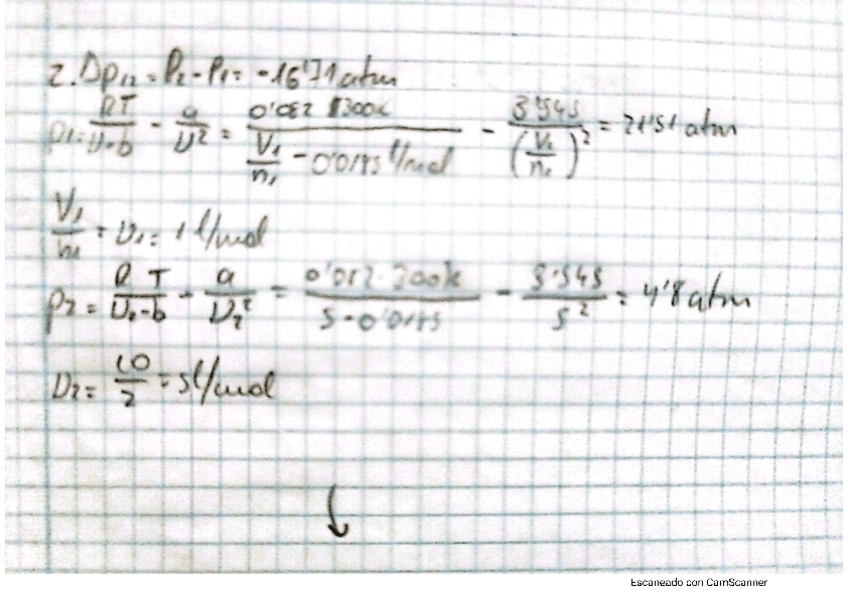 2. Δp₁₂ = P₂ - P₁ = -16'71 atm
p₁ = RT/(V-b) - a/V² = 0'082 · 300k/(V₁/n₁ - 0'0185 l/mol) - 3'545/(V₁/n₁)² = 21'51 atm
V₁/n₁ = V₁ = 1 l/mol
p₂ = R T/(V₂-b) - a/V₂² = 0'082 · 300k/(5 - 0'0185) - 3'545/5² = 4'8 atm
V₂ = 10/2 = 5 l/mol
↓
Escaneado con CamScanner